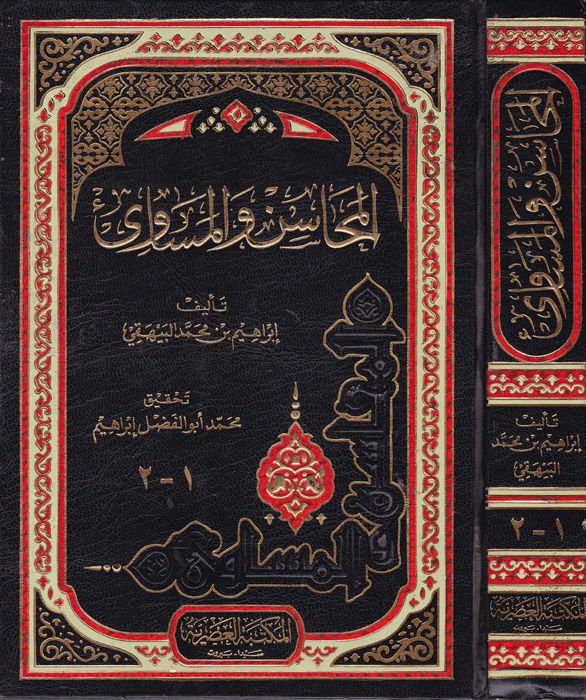 المحاسن والمساوئ
تأليف
إبراهيم بن محمد البيهقي
تحقيق
محمد أبو الفضل إبراهيم
١-٢
المحاسن
والمساوئ
المكتبة العصرية
صيدا - بيروت
المحاسن والمساوئ
تأليف
إبراهيم بن محمد
البيهقي
١-٢
المكتبة العصرية
صيدا - بيروت